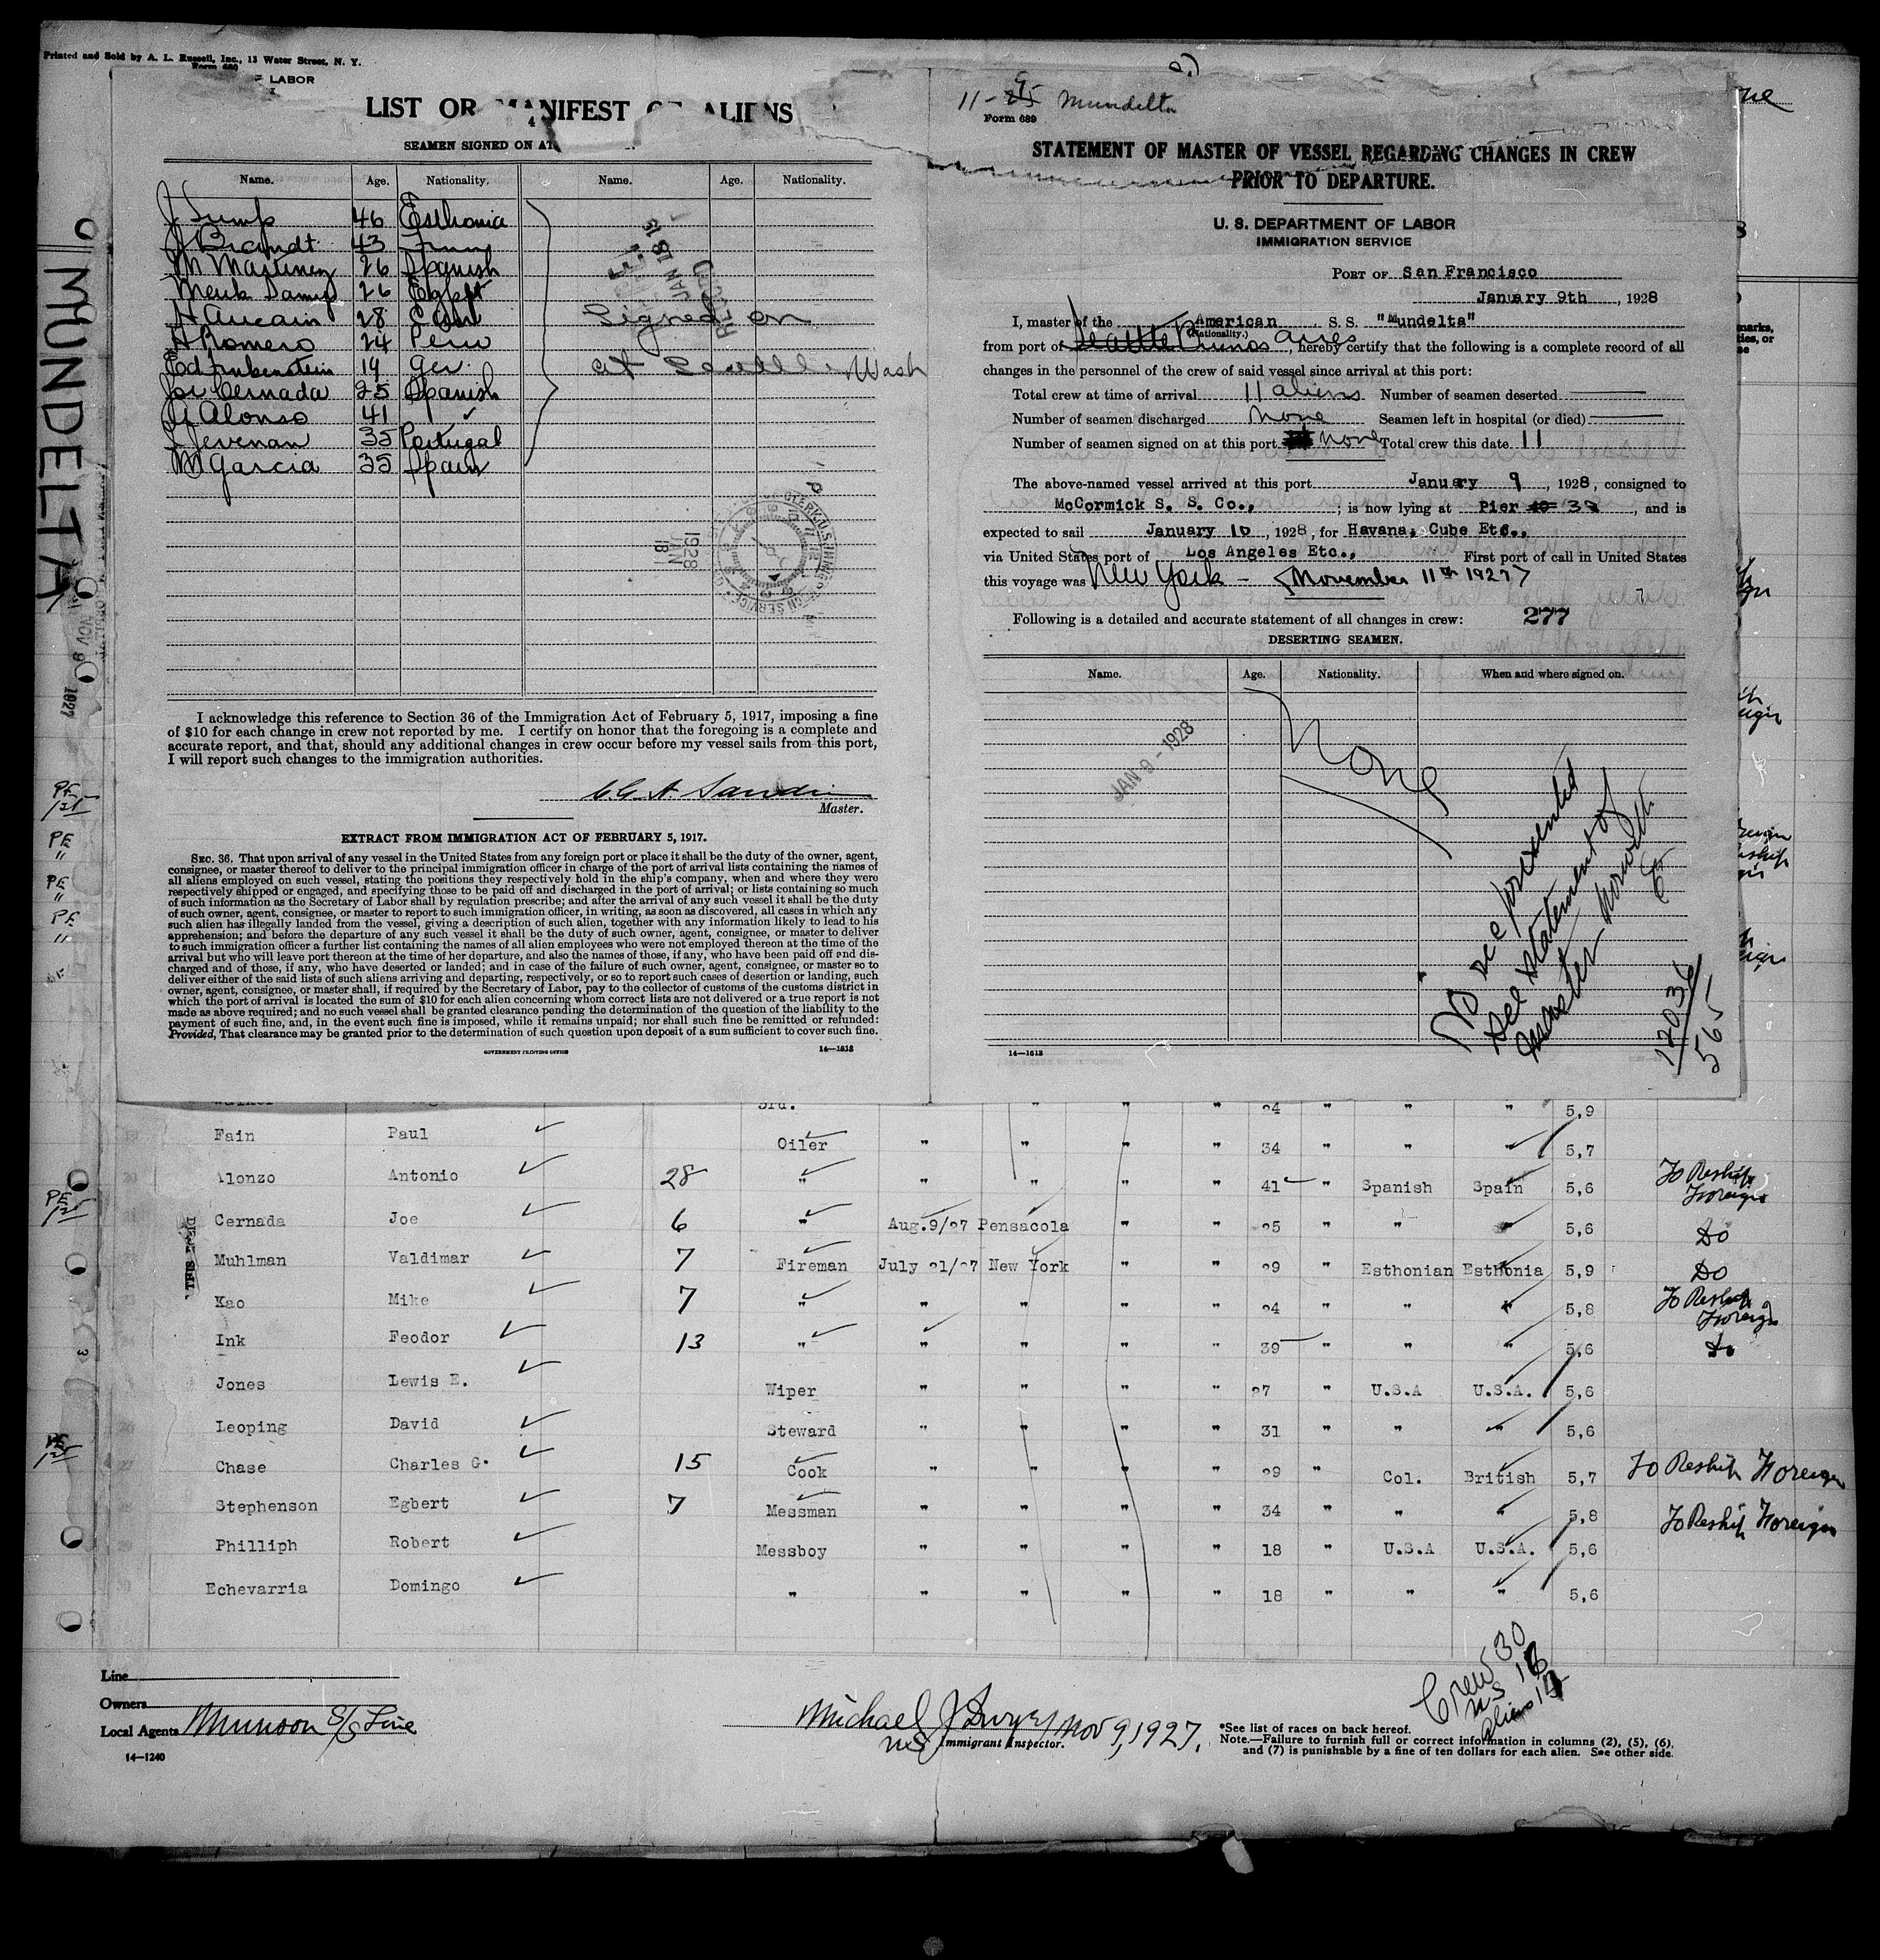 Printed and Sold by A. L. Russell, Inc., 13 Water Street, N. Y.
Form 680
LABOR
LIST OR MANIFEST OF ALIENS
SEAMEN SIGNED ON AT
Name. Age. Nationality. Name. Age. Nationality.
46 Esthonia
J Brandt 43
M Martinez 26 Spanish
26 Egypt
28
A Romero 24 Peru
19 Ger.
Joe Cernada 25 Spanish
A Alonso 41 ✓
35 Portugal
M Garcia 35 Spain
Signed on
at Seattle Wash
RECEIVED
JAN 18
JAN 18 1928
I acknowledge this reference to Section 36 of the Immigration Act of February 5, 1917, imposing a fine
of $10 for each change in crew not reported by me. I certify on honor that the foregoing is a complete and
accurate report, and that, should any additional changes in crew occur before my vessel sails from this port,
I will report such changes to the immigration authorities.
Master.
EXTRACT FROM IMMIGRATION ACT OF FEBRUARY 5, 1917.
SEC. 36. That upon arrival of any vessel in the United States from any foreign port or place it shall be the duty of the owner, agent,
consignee, or master thereof to deliver to the principal immigration officer in charge of the port of arrival lists containing the names of
all aliens employed on such vessel, stating the positions they respectively hold in the ship's company, when and where they were
respectively shipped or engaged, and specifying those to be paid off and discharged in the port of arrival; or lists containing so much
of such information as the Secretary of Labor shall by regulation prescribe; and after the arrival of any such vessel it shall be the duty
of such owner, agent, consignee, or master to report to such immigration officer, in writing, as soon as discovered, all cases in which any
such alien has illegally landed from the vessel, giving a description of such alien, together with any information likely to lead to his
apprehension; and before the departure of any such vessel it shall be the duty of such owner, agent, consignee, or master to deliver
to such immigration officer a further list containing the names of all alien employees who were not employed thereon at the time of the
arrival but who will leave port thereon at the time of her departure, and also the names of those, if any, who have been paid off and dis-
charged and of those, if any, who have deserted or landed; and in case of the failure of such owner, agent, consignee, or master so to
deliver either of the said lists of such aliens arriving and departing, respectively, or so to report such cases of desertion or landing, such
owner, agent, consignee, or master shall, if required by the Secretary of Labor, pay to the collector of customs of the customs district in
which the port of arrival is located the sum of $10 for each alien concerning whom correct lists are not delivered or a true report is not
made as above required; and no such vessel shall be granted clearance pending the determination of the question of the liability to the
payment of such fine, and, in the event such fine is imposed, while it remains unpaid; nor shall such fine be remitted or refunded:
Provided, That clearance may be granted prior to the determination of such question upon deposit of a sum sufficient to cover such fine.
GOVERNMENT PRINTING OFFICE 14—1613
11- Mundelta
Form 689
STATEMENT OF MASTER OF VESSEL REGARDING CHANGES IN CREW
PRIOR TO DEPARTURE.
U. S. DEPARTMENT OF LABOR
IMMIGRATION SERVICE
PORT OF San Francisco
January 9th, 1928
I, master of the American S. S. "Mundelta"
(Nationality.)
from port of Seattle Buenos Aires, hereby certify that the following is a complete record of all
changes in the personnel of the crew of said vessel since arrival at this port:
Total crew at time of arrival 11 aliens Number of seamen deserted
Number of seamen discharged None Seamen left in hospital (or died)
Number of seamen signed on at this port none Total crew this date 11
The above-named vessel arrived at this port January 9, 1928, consigned to
McCormick S. S. Co., ; is now lying at Pier 40 38, and is
expected to sail January 10, 1928, for Havana, Cube Etc.,
via United States port of Los Angeles Etc., First port of call in United States
this voyage was New York - November 11th 1927
Following is a detailed and accurate statement of all changes in crew: 277
DESERTING SEAMEN.
Name. Age. Nationality. When and where signed on.
None
JAN 9 - 1928
No presented
See statement of
master
12036
565
14—1613
MUNDELTA
NOV 9 1927
3rd. " " " 24 " " " 5,9
Fain Paul ✓ Oiler " " " " 34 " " " 5,7
Alonzo Antonio ✓ 28 " " " " " 41 " Spanish Spain 5,6 To Reship Foreign
Cernada Joe ✓ 6 " Aug.9/27 Pensacola " " 25 " " " 5,6 Do
Muhlman Valdimar ✓ 7 Fireman July 21/27 New York " " 29 " Esthonian Esthonia 5,9 Do
Kao Mike ✓ 7 " " " " " 24 " " " 5,8 To Reship Foreign
Ink Feodor ✓ 13 " " " " " 39 " " " 5,6 Do
Jones Lewis E. ✓ Wiper " " " " 27 " U.S.A U.S.A. 5,6
Leoping David ✓ Steward " " " " 31 " " " 5,6
Chase Charles G. ✓ 15 Cook " " " " 29 " Col. British 5,7 To Reship Foreign
Stephenson Egbert ✓ 7 Messman " " " " 34 " " " 5,8 To Reship Foreign
Philliph Robert ✓ Messboy " " " " 18 " U.S.A U.S.A. 5,6
Echevarria Domingo ✓ " " " " " 18 " " " 5,6
Crew 30
Line
Owners
Local Agents Munson S/S Line
14—1240
Michael J Dwyer Nov 9, 1927.
Immigrant Inspector.
*See list of races on back hereof.
Note.—Failure to furnish full or correct information in columns (2), (5), (6),
and (7) is punishable by a fine of ten dollars for each alien. See other side.